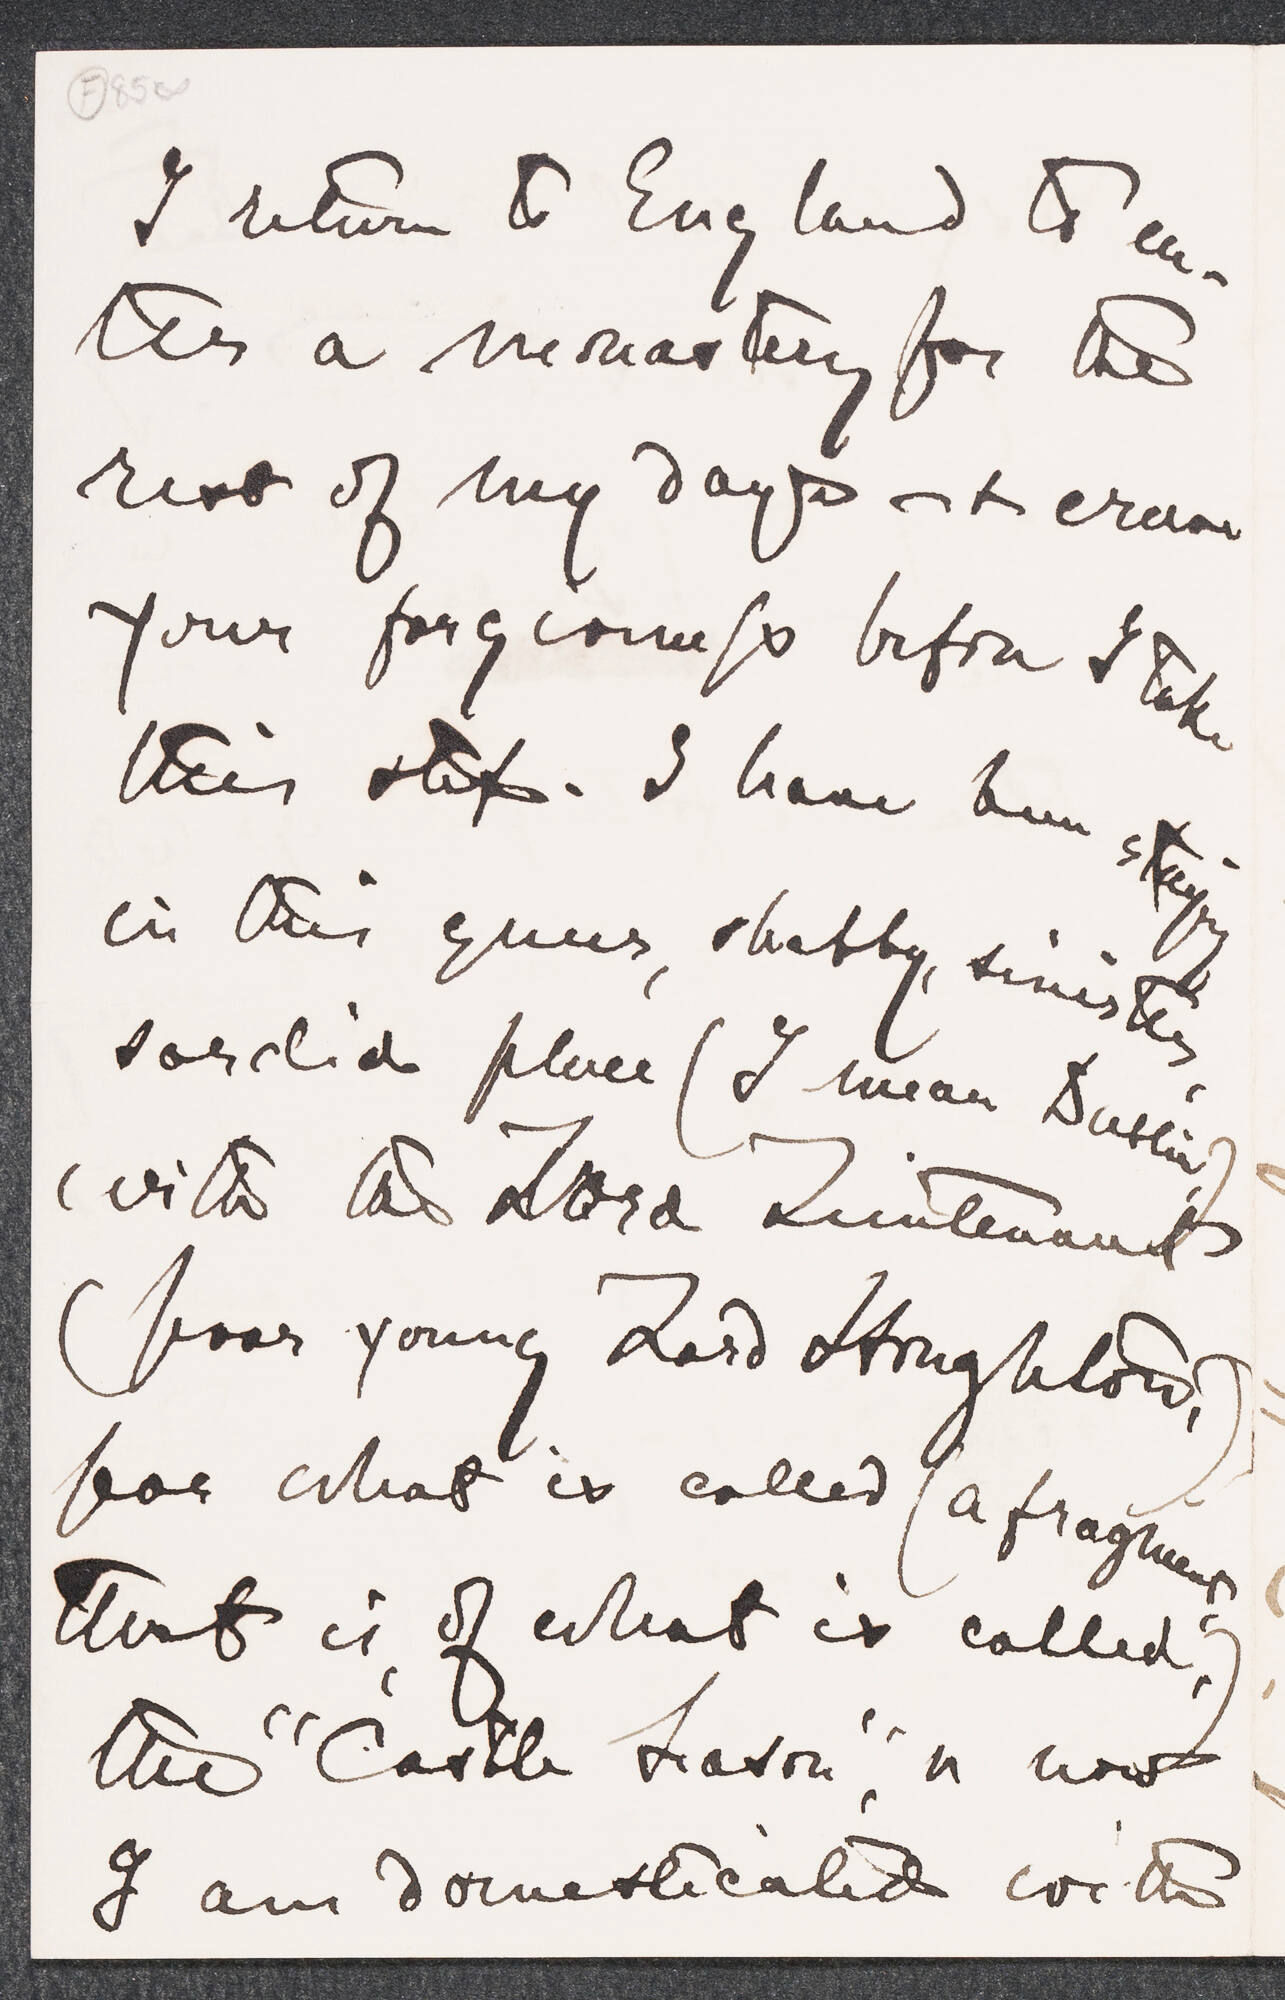 I return to England to en-
ter a monastery for the
rest of my days – & crave
your forgiveness before I take
this step. I have been staying
in this queer, shabby, sinister,
sordid place (I mean Dublin,)
with the Lord Lieutenant
(poor young Lord Houghton,)
for what is called (a fragment
that is, of what is called,)
the "Castle Season", & now
I am domesticated with